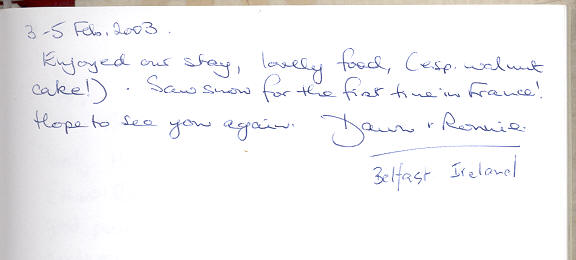 3-5 Feb. 2003.
Enjoyed our stay, lovely food, (esp. walnut
cake!). Saw snow for the first time in France!
Hope to see you again. Dawn & Ronnie.
Belfast Ireland